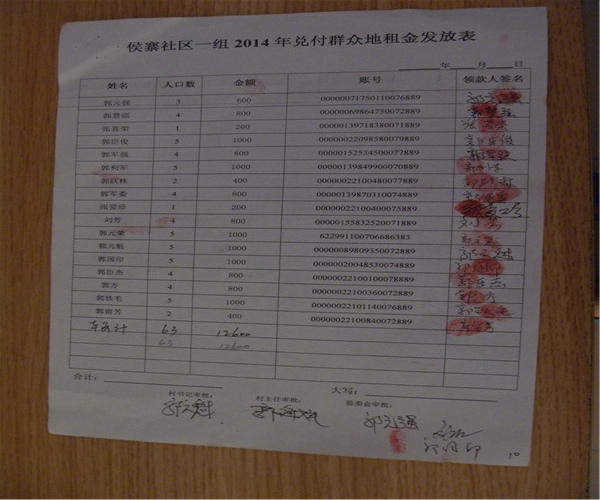 侯寨社区一组 2014 年兑付群众地租金发放表
年 月 日
姓名 人口数 金额 账号 领款人签名
郭元强 3 600 00000071750110076889
郭慧强 4 800 00000069864750072889
张喜荣 1 200 00000139718380071889
郭臣俊 5 1000 00000022098580079889
郭军强 4 800 00000152534500077889
郭利军 5 1000 00000139849900070889
郭跃林 2 400 00000022100480077889
郭军委 4 800 00000139870310074889
张爱珍 1 200 00000022100400075889
刘芳 4 800 00000155832520071889 刘芳
郭元荣 5 1000 622991100706686383
郭元魁 5 1000 00000089809350072889 郭元魁
郭国印 5 1000 00000020048530074889 郭国印
郭臣杰 4 800 00000022100100078889
郭方 4 800 00000022100360072889 郭方
郭铁毛 5 1000 00000022101140076889
郭留芳 2 400 00000022100840072889
63 12600
63 12600
合计： 大写：
村书记审批： 村主任审批： 监委会审批：
郭元魁 郭元强
郭国印
10